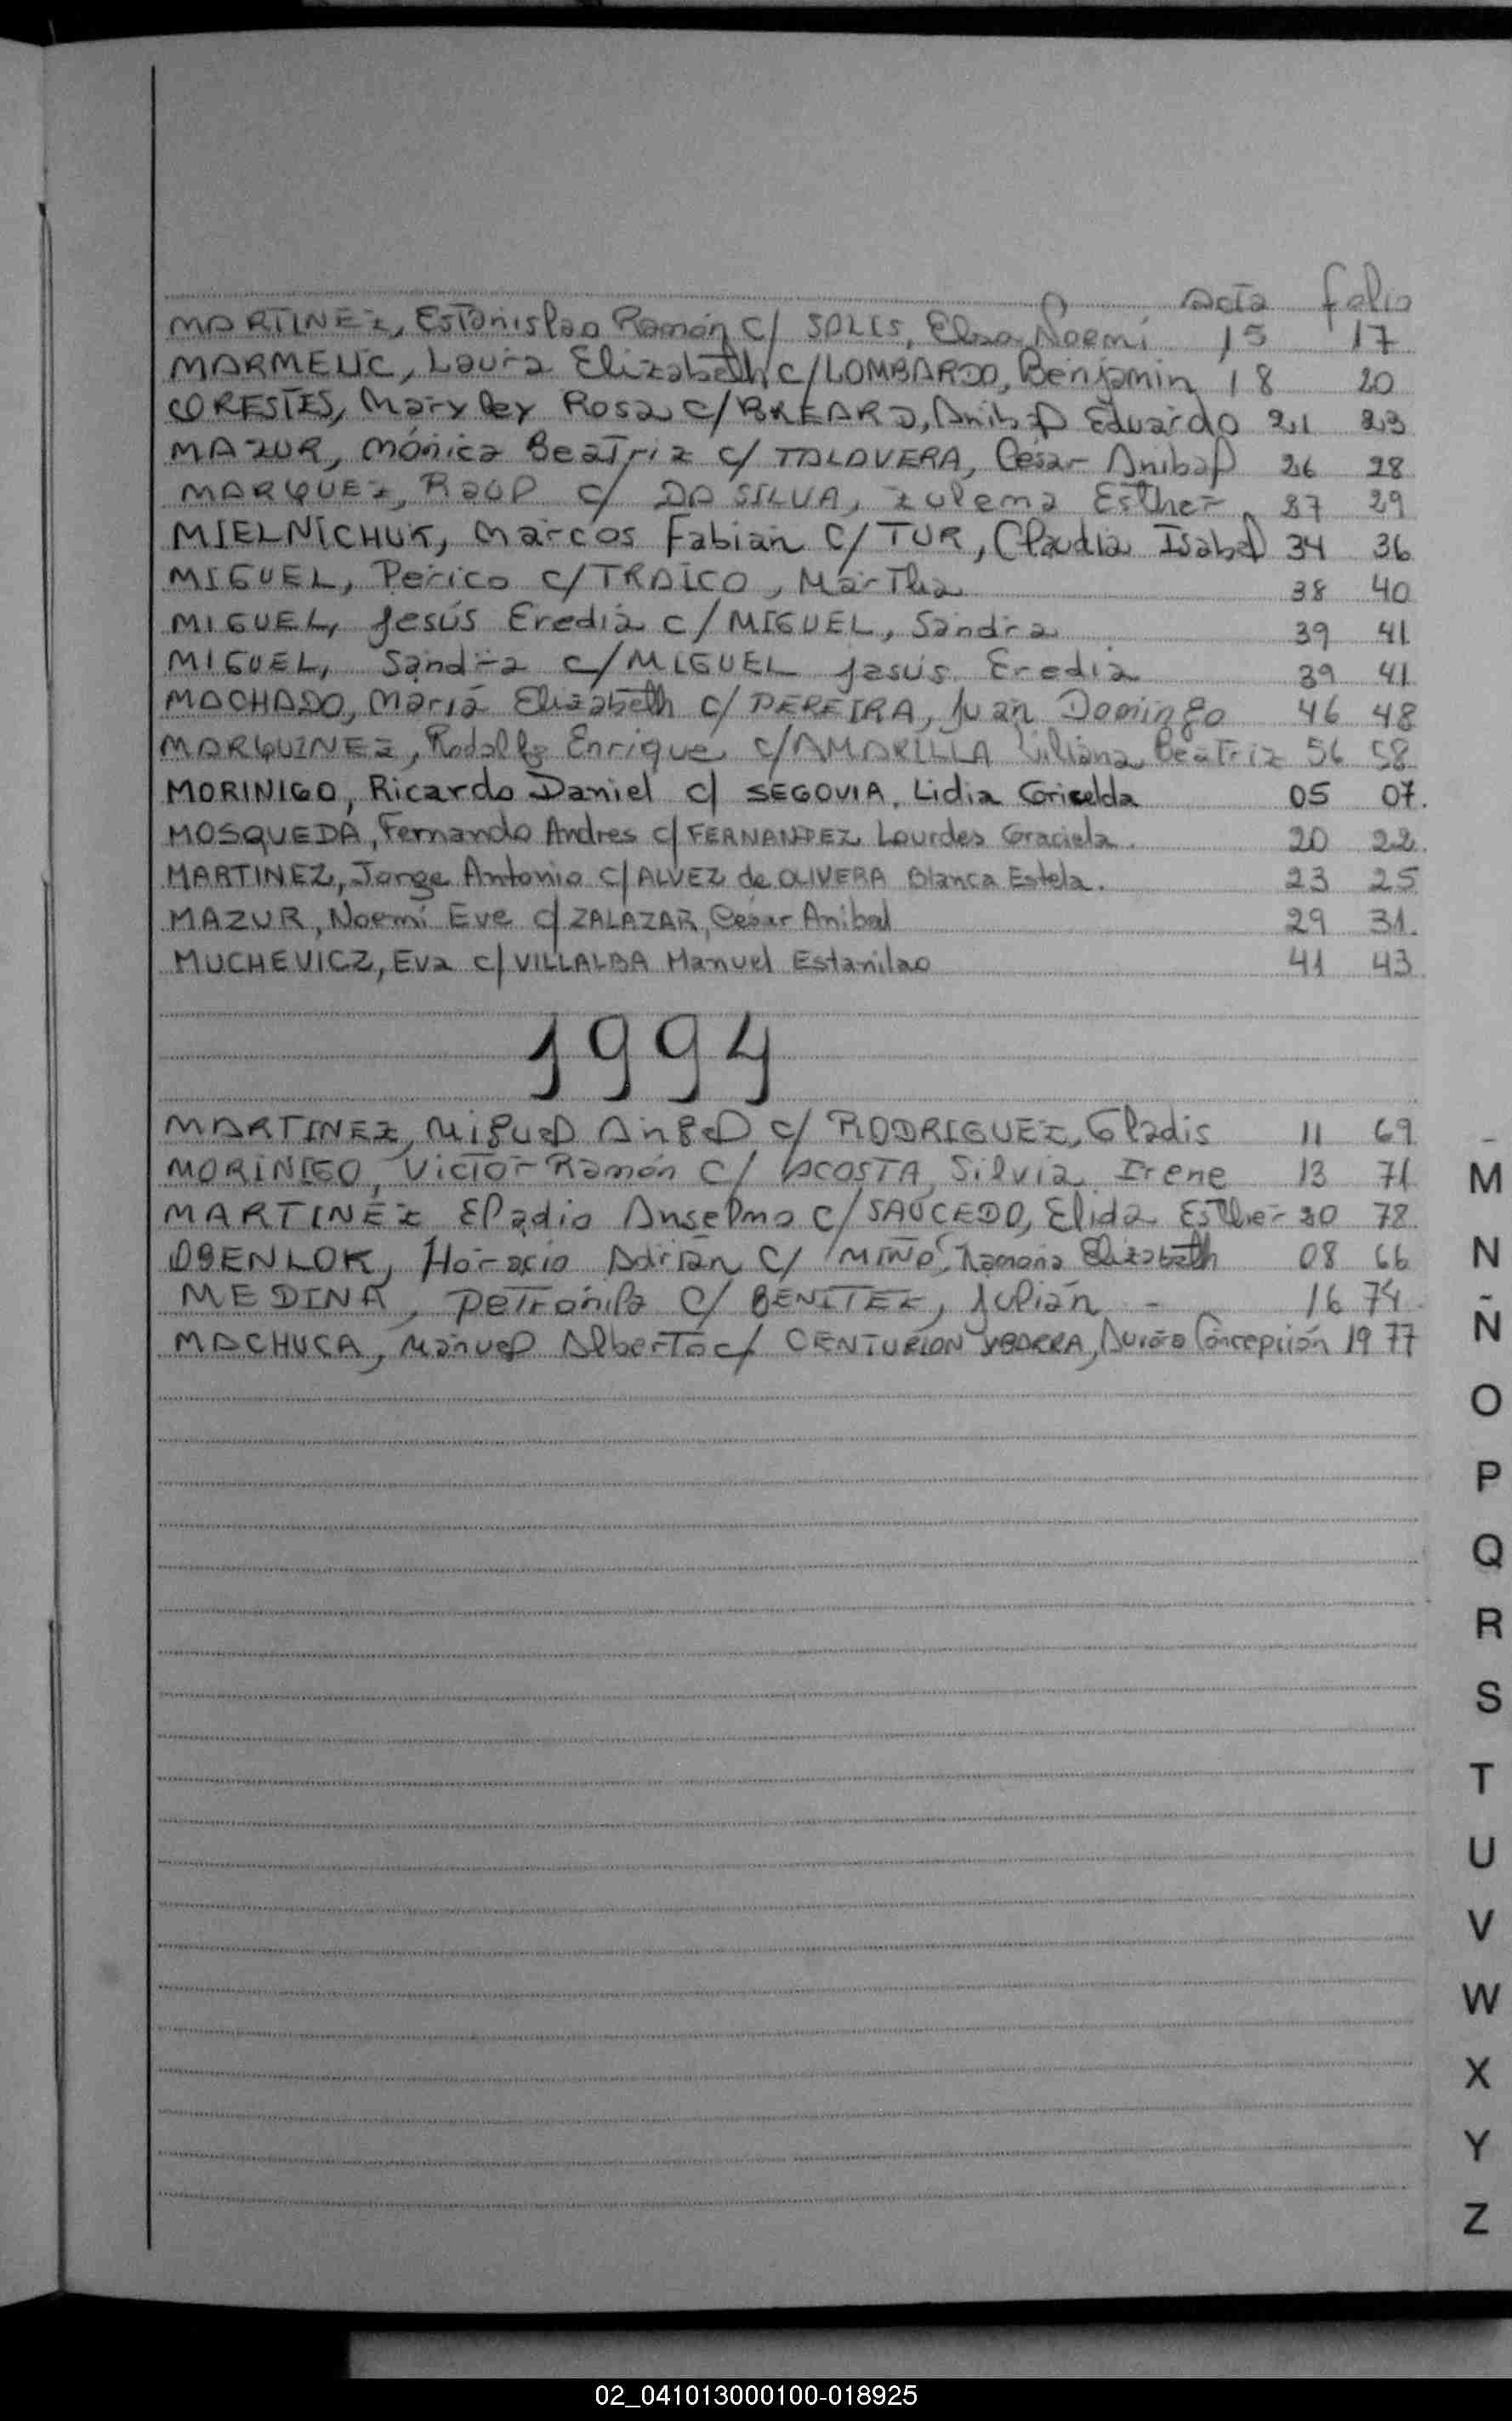 acta folio
MARTINEZ, Estanislao Ramón c/ SOLIS, Elsa Noemí 15 17
MARMELIC, Laura Elizabeth c/ LOMBARDO, Benjamin 18 20
ORESTES, Mary Ley Rosa c/ BREARD, Anibal Eduardo 21 23
MAZUR, Mónica Beatriz c/ TALAVERA, César Anibal 26 28
MARQUEZ, Raul c/ DA SILVA, Zulema Esther 27 29
MIELNICHUK, Marcos Fabian c/ TUR, Claudia Isabel 34 36
MIGUEL, Perico c/ TRAICO, Martha 38 40
MIGUEL, Jesús Eredia c/ MIGUEL, Sandra 39 41
MIGUEL, Sandra c/ MIGUEL Jesús Eredia 39 41
MACHADO, María Elizabeth c/ PEREIRA, Juan Domingo 46 48
MARQUINEZ, Rodolfo Enrique c/ AMARILLA Liliana Beatriz 56 58
MORINIGO, Ricardo Daniel c/ SEGOVIA, Lidia Griselda 05 07.
MOSQUEDA, Fernando Andres c/ FERNANDEZ Lourdes Graciela. 20 22.
MARTINEZ, Jorge Antonio c/ ALVEZ de OLIVERA Blanca Estela. 23 25
MAZUR, Noemí Eve c/ ZALAZAR, César Anibal 29 31.
MUCHEVICZ, Eva c/ VILLALBA Manuel Estanilao 41 43
1994
MARTINEZ, Miguel Angel c/ RODRIGUEZ, Gladis 11 69
MORINIGO, Victor Ramón c/ ACOSTA, Silvia Irene 13 71
MARTINEZ Eladio Anselmo c/ SAUCEDO, Elida Esther 20 78
OBENLOK, Horacio Adrián c/ MIÑO, Ramona Elizabeth 08 66
MEDINA, Petronila c/ BENITEZ, Julián - 16 74
MACHUCA, Manuel Alberto c/ CENTURION YBARRA, Concepción 19 77
M
N
Ñ
O
P
Q
R
S
T
U
V
W
X
Y
Z
02_041013000100-018925